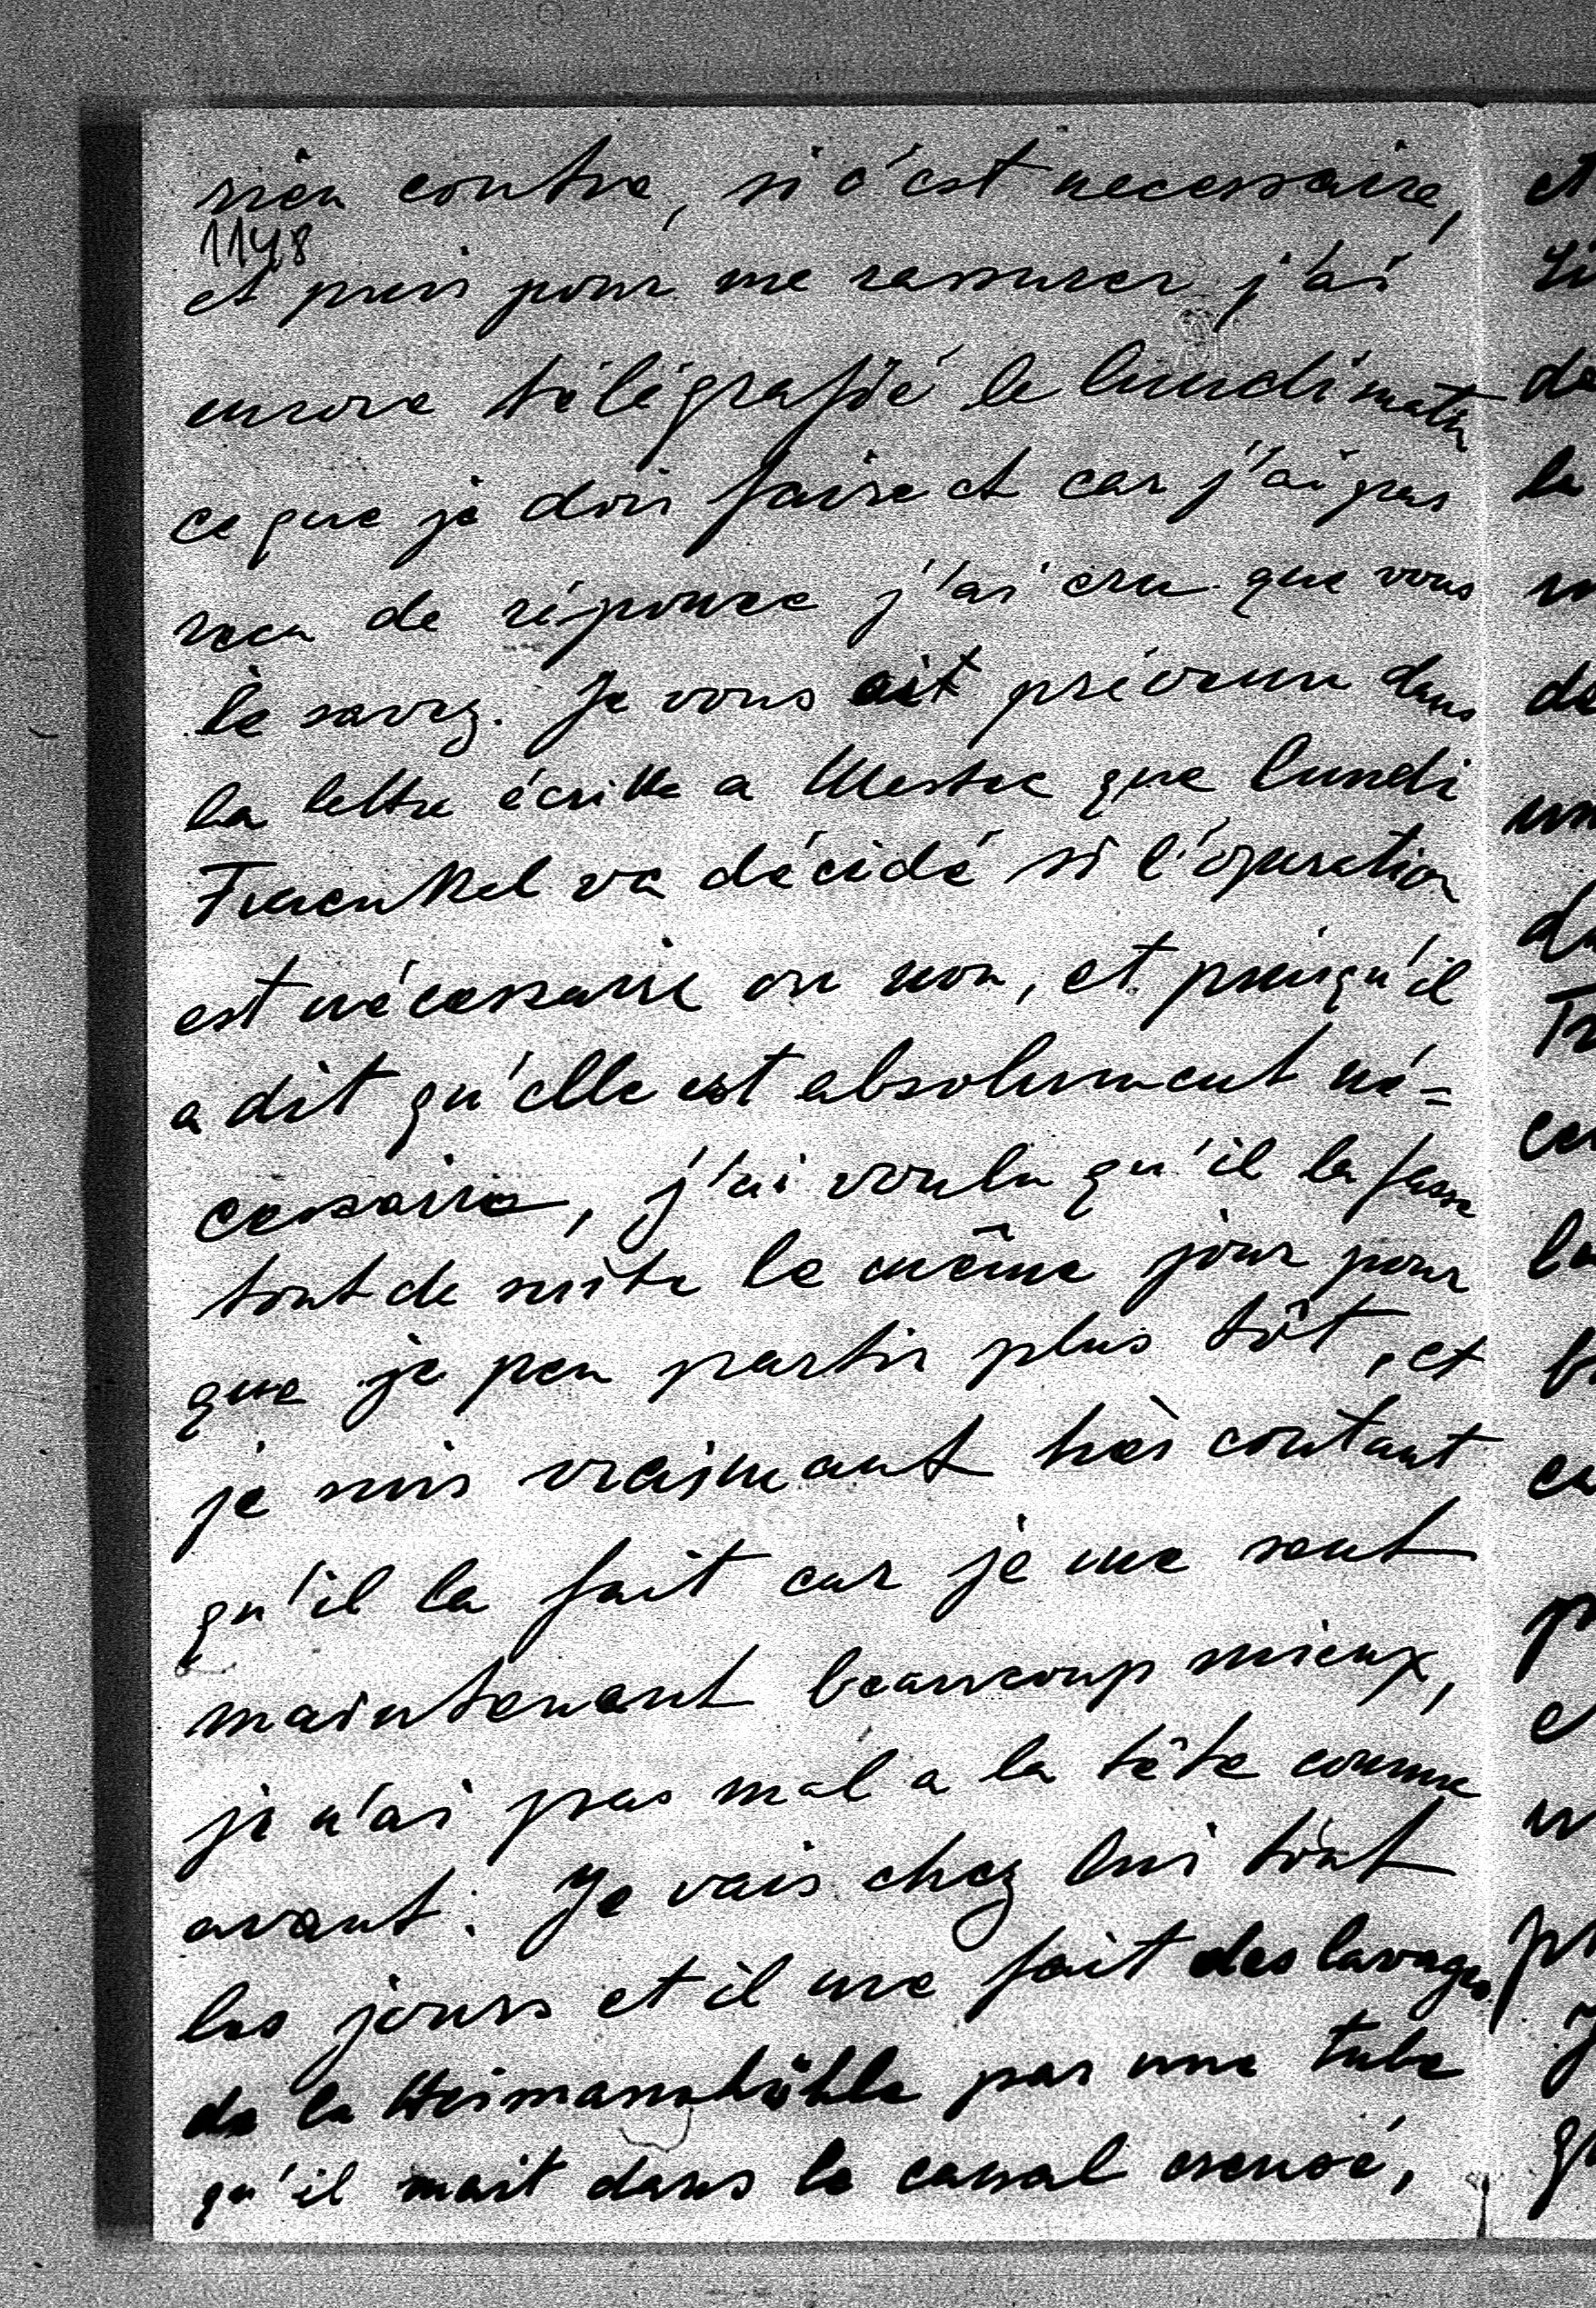 rien contre, si c'est necessaire,
1148
et puis pour me rassurer j'ai
encore télégrafié le lundi matin
ce que je dois faire et car j'ai pas
recu de réponce j'ai cru que vous
le savez. Je vous ait prévenu dans
la lettre écritte a que lundi
Fraenkel va décidé si l'operation
est nécessaire ou non, et puisqu'il
a dit qu'elle est absolument né=
cessaire, j'ai voulu qu'il la fasse
tout de suite le même jour pour
que je peu partir plus tôt, et
je suis vraimant très contant
qu'il la fait car je me sent
maintenant beaucoup mieux,
je n'ai pas mal a la tête comme
avant. Je vais chez lui tout
les jours et il me fait des lavages
de la par une tube
qu'il mait dans le canal creusé,
et
la